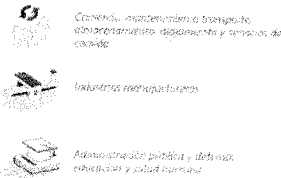 Comercio, mantenimiento, transporte,
almacenamiento, alojamiento y servicios de
comida
Industrias manufactureras
Administración pública y defensa,
educación y salud humana